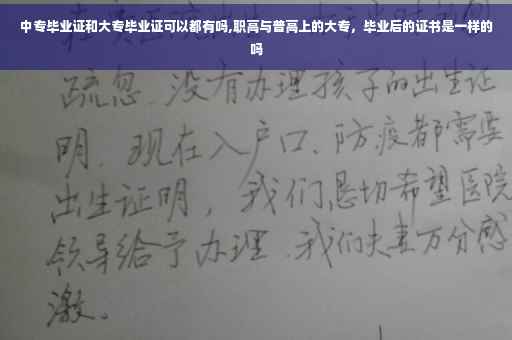 中专毕业证和大专毕业证可以都有吗,职高与普高上的大专，毕业后的证书是一样的
吗
疏忽.没有办理孩子的出生证
明.现在入户口、防疫都需要
出生证明，我们恳切希望医院
领导给予办理.我们夫妻万分感
激。